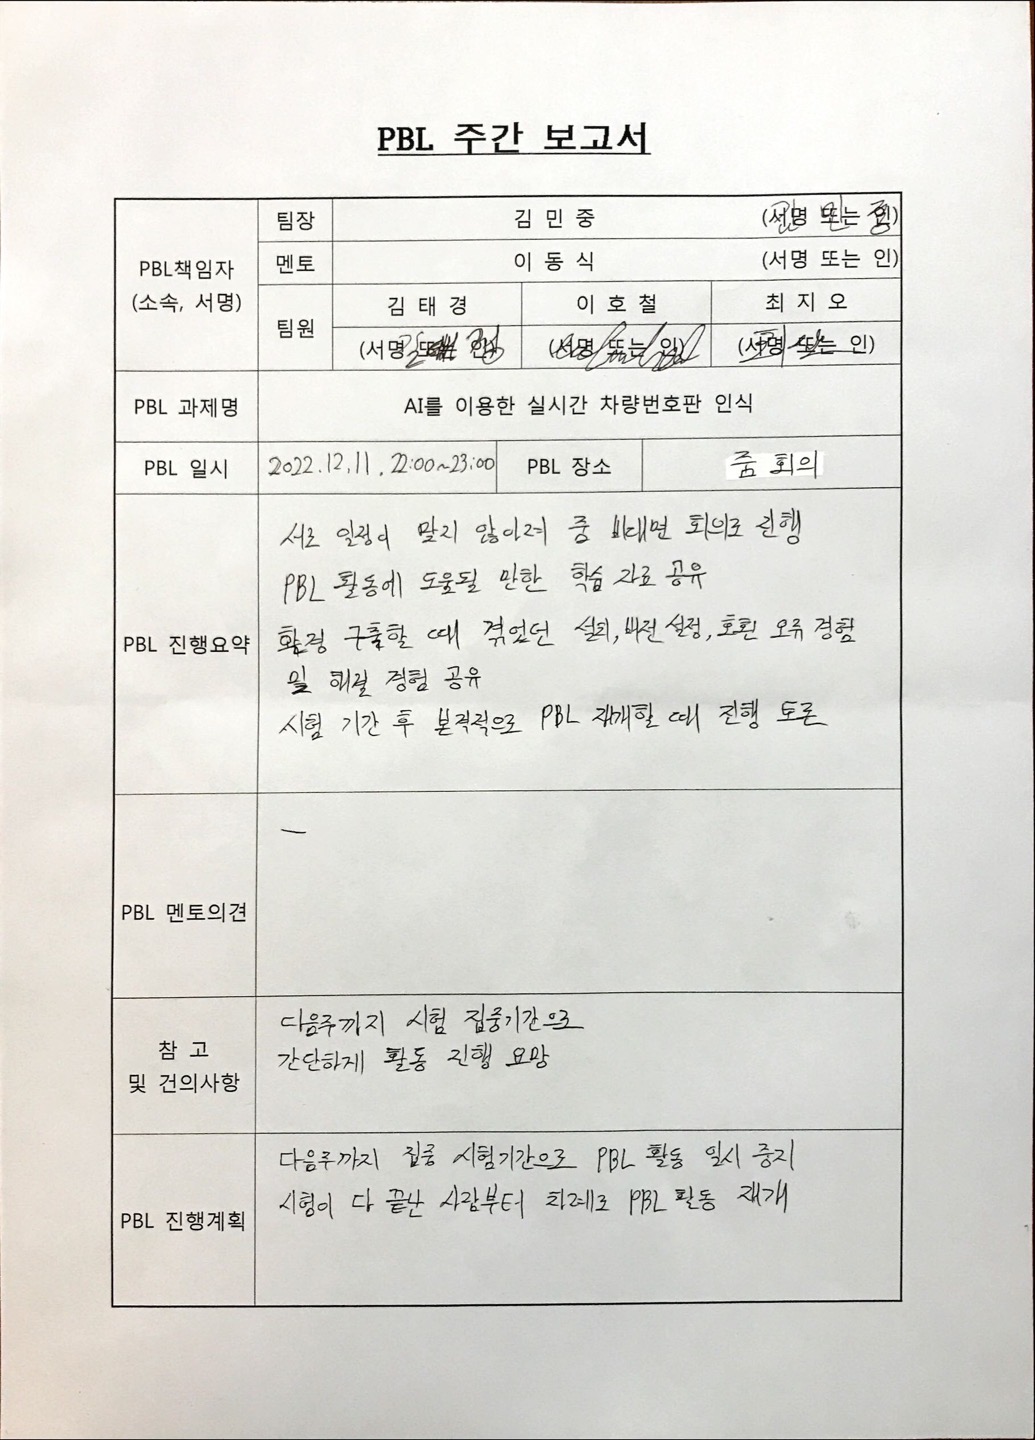 PBL 주간 보고서
PBL책임자
(소속, 서명)
팀장
김 민 중
(서명 또는 인)
멘토
이 동 식
(서명 또는 인)
팀원
김 태 경
이 호 철
최 지 오
(서명 또는 인)
(서명 또는 인)
(서명 또는 인)
PBL 과제명
AI를 이용한 실시간 차량번호판 인식
PBL 일시
2022.12.11. 22:00~23:00
PBL 장소
줌 회의
PBL 진행요약
서로 일정이 맞지 않아져 줌 비대면 회의로 진행
PBL 활동에 도움될 만한 학습 자료 공유
환경 구축할 때 겪었던 설치, 버전 설정, 호환 오류 경험
및 해결 경험 공유
시험 기간 후 본격적으로 PBL 재개할 때 진행 토론
PBL 멘토의견
—
참 고
및 건의사항
다음주까지 시험 집중기간으로
간단하게 활동 진행 요망
PBL 진행계획
다음주까지 집중 시험기간으로 PBL 활동 일시 중지
시험이 다 끝난 사람부터 차례로 PBL 활동 재개